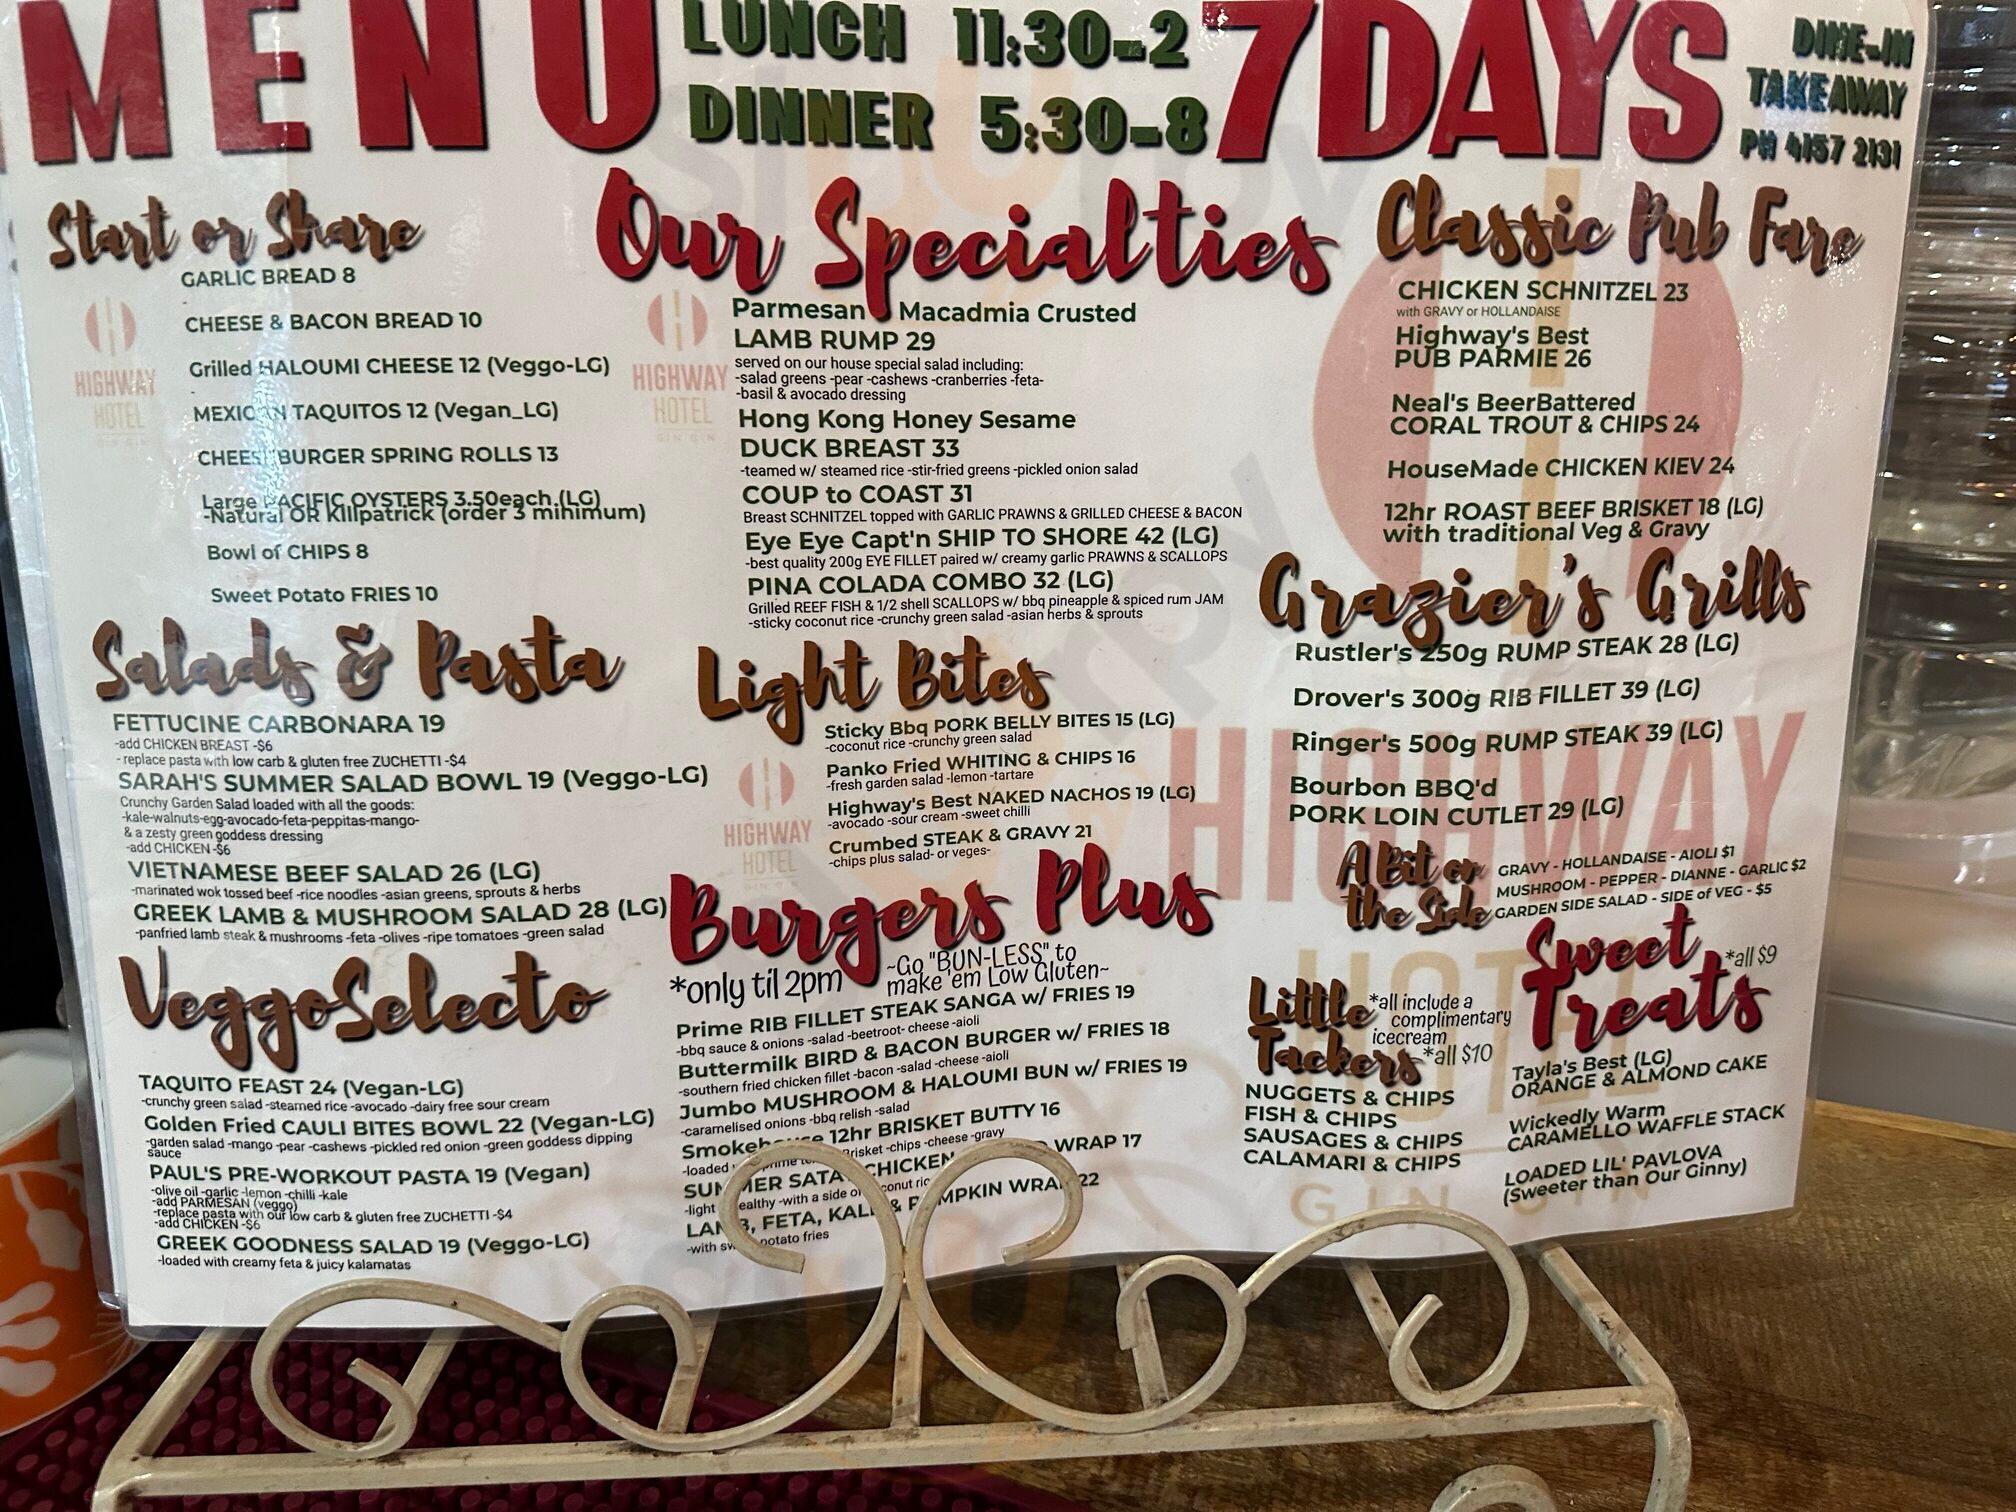 MENU
LUNCH 11:30-2
DINNER 5:30-8
7DAYS
DINE-IN
TAKEAWAY
PH 4157 2131
Start or Share
GARLIC BREAD 8
CHEESE & BACON BREAD 10
Grilled HALOUMI CHEESE 12 (Veggo-LG)
MEXICAN TAQUITOS 12 (Vegan_LG)
CHEESEBURGER SPRING ROLLS 13
Large PACIFIC OYSTERS 3.50each (LG)
-Natural OR Killpatrick (order 3 mihimum)
Bowl of CHIPS 8
Sweet Potato FRIES 10
HIGHWAY
HOTEL
GIN GIN
Salads & Pasta
FETTUCINE CARBONARA 19
-add CHICKEN BREAST -$6
- replace pasta with low carb & gluten free ZUCHETTI -$4
SARAH'S SUMMER SALAD BOWL 19 (Veggo-LG)
Crunchy Garden Salad loaded with all the goods:
-kale-walnuts-egg-avocado-feta-peppitas-mango-
& a zesty green goddess dressing
-add CHICKEN -$6
VIETNAMESE BEEF SALAD 26 (LG)
-marinated wok tossed beef -rice noodles -asian greens, sprouts & herbs
GREEK LAMB & MUSHROOM SALAD 28 (LG)
-panfried lamb steak & mushrooms -feta -olives -ripe tomatoes -green salad
VeggoSelecto
TAQUITO FEAST 24 (Vegan-LG)
-crunchy green salad -steamed rice -avocado -dairy free sour cream
Golden Fried CAULI BITES BOWL 22 (Vegan-LG)
-garden salad -mango -pear -cashews -pickled red onion -green goddess dipping
sauce
PAUL'S PRE-WORKOUT PASTA 19 (Vegan)
-olive oil -garlic -lemon -chilli -kale
-add PARMESAN (veggo)
-replace pasta with our low carb & gluten free ZUCHETTI -$4
-add CHICKEN -$6
GREEK GOODNESS SALAD 19 (Veggo-LG)
-loaded with creamy feta & juicy kalamatas
Our Specialties
Parmesan Macadmia Crusted
LAMB RUMP 29
served on our house special salad including:
-salad greens -pear -cashews -cranberries -feta-
-basil & avocado dressing
Hong Kong Honey Sesame
DUCK BREAST 33
-teamed w/ steamed rice -stir-fried greens -pickled onion salad
COUP to COAST 31
Breast SCHNITZEL topped with GARLIC PRAWNS & GRILLED CHEESE & BACON
Eye Eye Capt'n SHIP TO SHORE 42 (LG)
-best quality 200g EYE FILLET paired w/ creamy garlic PRAWNS & SCALLOPS
PINA COLADA COMBO 32 (LG)
Grilled REEF FISH & 1/2 shell SCALLOPS w/ bbq pineapple & spiced rum JAM
-sticky coconut rice -crunchy green salad -asian herbs & sprouts
HIGHWAY
HOTEL
GIN GIN
Light Bites
Sticky Bbq PORK BELLY BITES 15 (LG)
-coconut rice -crunchy green salad
Panko Fried WHITING & CHIPS 16
-fresh garden salad -lemon -tartare
Highway's Best NAKED NACHOS 19 (LG)
-avocado -sour cream -sweet chilli
Crumbed STEAK & GRAVY 21
-chips plus salad- or veges-
HIGHWAY
HOTEL
GIN GIN
Burgers Plus
*only til 2pm
~Go "BUN-LESS" to
make 'em Low Gluten~
Prime RIB FILLET STEAK SANGA w/ FRIES 19
-bbq sauce & onions -salad -beetroot- cheese -aioli
Buttermilk BIRD & BACON BURGER w/ FRIES 18
-southern fried chicken fillet -bacon -salad -cheese -aioli
Jumbo MUSHROOM & HALOUMI BUN w/ FRIES 19
-caramelised onions -bbq relish -salad
Smokehouse 12hr BRISKET BUTTY 16
-loaded prime Brisket -chips -cheese -gravy
SUMMER SATAY CHICKEN WRAP 17
-light ealthy -with a side of
LAMB, FETA, KALE & PUMPKIN WRAP 22
-with sw potato fries
Classic Pub Fare
CHICKEN SCHNITZEL 23
with GRAVY or HOLLANDAISE
Highway's Best
PUB PARMIE 26
Neal's BeerBattered
CORAL TROUT & CHIPS 24
HouseMade CHICKEN KIEV 24
12hr ROAST BEEF BRISKET 18 (LG)
with traditional Veg & Gravy
Grazier's Grills
Rustler's 250g RUMP STEAK 28 (LG)
Drover's 300g RIB FILLET 39 (LG)
Ringer's 500g RUMP STEAK 39 (LG)
Bourbon BBQ'd
PORK LOIN CUTLET 29 (LG)
HIGHWAY
HOTEL
GIN GIN
A Bit on
the Side
GRAVY - HOLLANDAISE - AIOLI $1
MUSHROOM - PEPPER - DIANNE - GARLIC $2
GARDEN SIDE SALAD - SIDE of VEG - $5
Little
Tackers
*all include a
complimentary
icecream
*all $10
NUGGETS & CHIPS
FISH & CHIPS
SAUSAGES & CHIPS
CALAMARI & CHIPS
Sweet
Treats
*all $9
Tayla's Best (LG)
ORANGE & ALMOND CAKE
Wickedly Warm
CARAMELLO WAFFLE STACK
LOADED LIL' PAVLOVA
(Sweeter than Our Ginny)